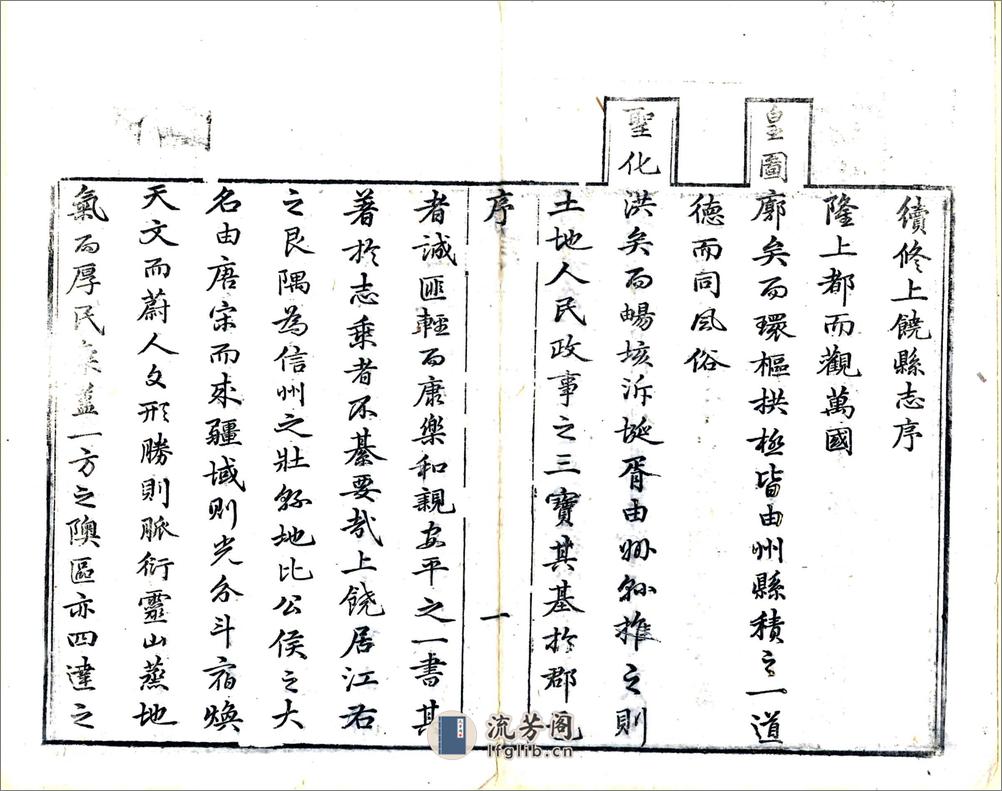 續修上饒縣志序
隆上都而觀萬國
皇圖廓矣而環樞拱極皆由州縣積之一道
德而同風俗
聖化洪矣而暢垓泝埏胥由州縣推之則
土地人民政事之三寶其基於郡邑
序
一
者誠匪輕而康樂和親安平之一書其
著於志乘者不綦要哉上饒居江右
之艮隅為信州之壯縣地比公侯之大
名由唐宋而來疆域則光分斗宿煥
天文而蔚人文形勝則脈衍靈山蒸地
氣而厚民 蓋一方之隩區亦四達之
流芳阁
lfglib.cn